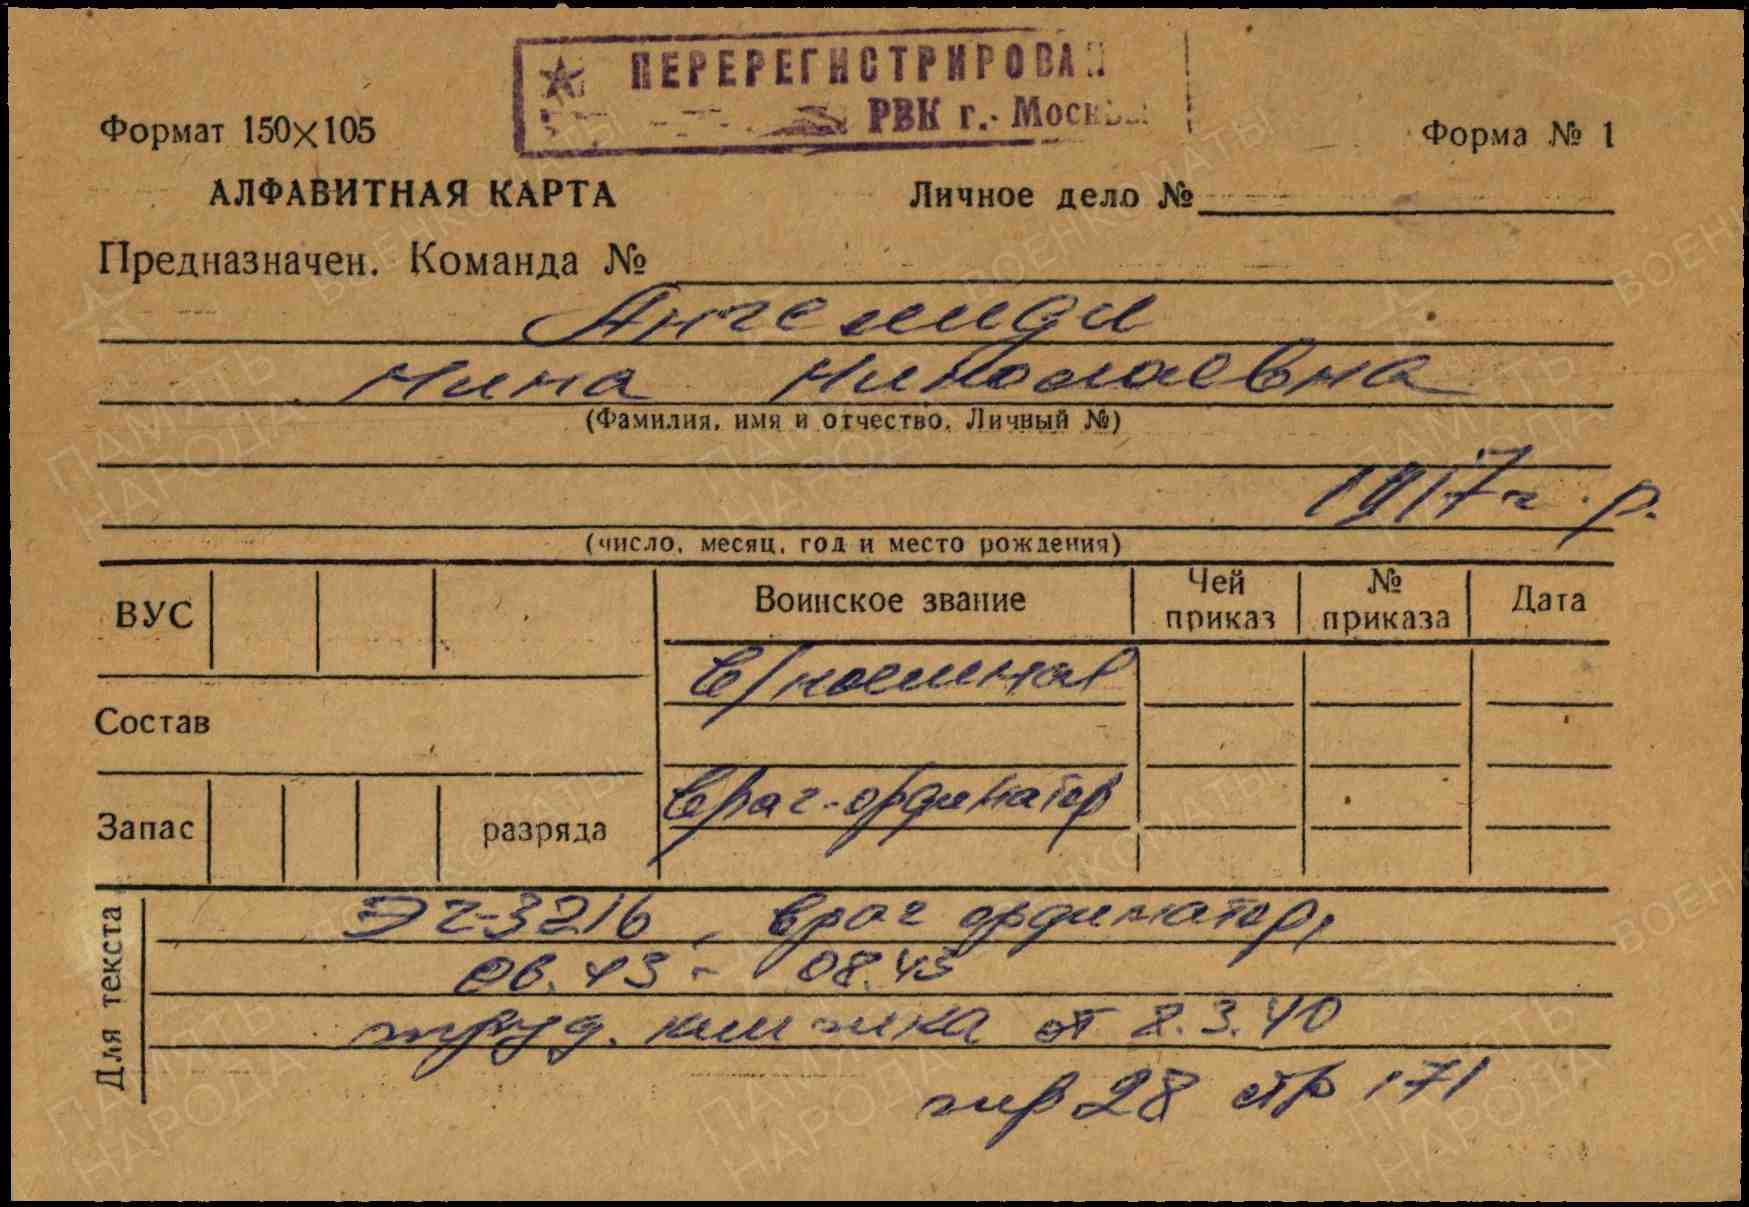 ПЕРЕРЕГИСТРИРОВАН
РВК г. Москвы
Формат 150×105
Форма № 1
АЛФАВИТНАЯ КАРТА
Личное дело №
Предназначен. Команда №
Ангелиди
Нина Николаевна
(Фамилия, имя и отчество. Личный №)
1917 г. р.
(число, месяц, год и место рождения)
ВУС
Воинское звание
Чей приказ
№ приказа
Дата
в/
Состав
врач-ординатор
Запас
разряда
Для текста
ЭГ-3216, врач ординатор,
06.43 - 08.43
труд. книжка от 2.3.40
28 стр 171
ПАМЯТЬ НАРОДА
ВОЕНКОМАТЫ